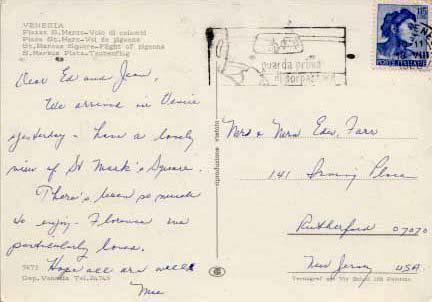 VENEZIA
Piazza S. Marco-Volo di colombi
Place St. Marc-Vol de pigeons
St. Marcus Square-Flight of pigeons
S. Markus Platz-Taubenflug
Dear Ed and Jean,
We arrived in Venice
yesterday - have a lovely
view of St Mark's Square.
There's been so much
to enjoy - Florence we
particularly loved.
Hope all are well
7473
Dep. Venezia Tel. 24745
guarda prima
di sorpassare
riproduzione vietata
115
POSTE ITALIANE
Mr & Mrs Edw. Farr
141 Irving Place
Rutherford 07070
New Jersey USA